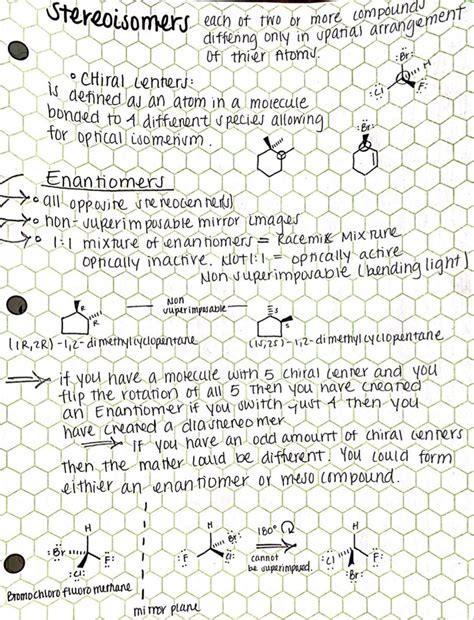 Stereoisomers each of two or more compounds
differing only in spatial arrangement
of thier Atoms.
• CHiral Centers:
is defined as an atom in a molecule
bonded to 4 different species allowing
for optical isomerism.
:Br:
H
:Cl
F:
:Br:
Enantiomers
→• all opposite stereocenter(s)
→• non-superimposable mirror images
→• 1:1 mixture of enantiomers = Racemic Mixture
optically inactive. Not 1:1 = optically active
Non superimposable (bending light)
R
R
Non
superimposable
S
S
(1R,2R)-1,2-dimethylcyclopentane
(1S,2S)-1,2-dimethylcyclopentane
⇒ if you have a molecule with 5 chiral center and you
flip the rotation of all 5 then you have created
an Enantiomer if you switch just 4 then you
have created a diastereomer
⇒ If you have an odd amount of chiral centers
then the matter could be different. You could form
eithier an enantiomer or meso compound.
H
:Br
F:
:Cl:
Bromochlorofluoromethane
mirror plane
H
:F
Br:
Cl:
180°
cannot
be superimposed.
H
:Cl
F:
:Br: